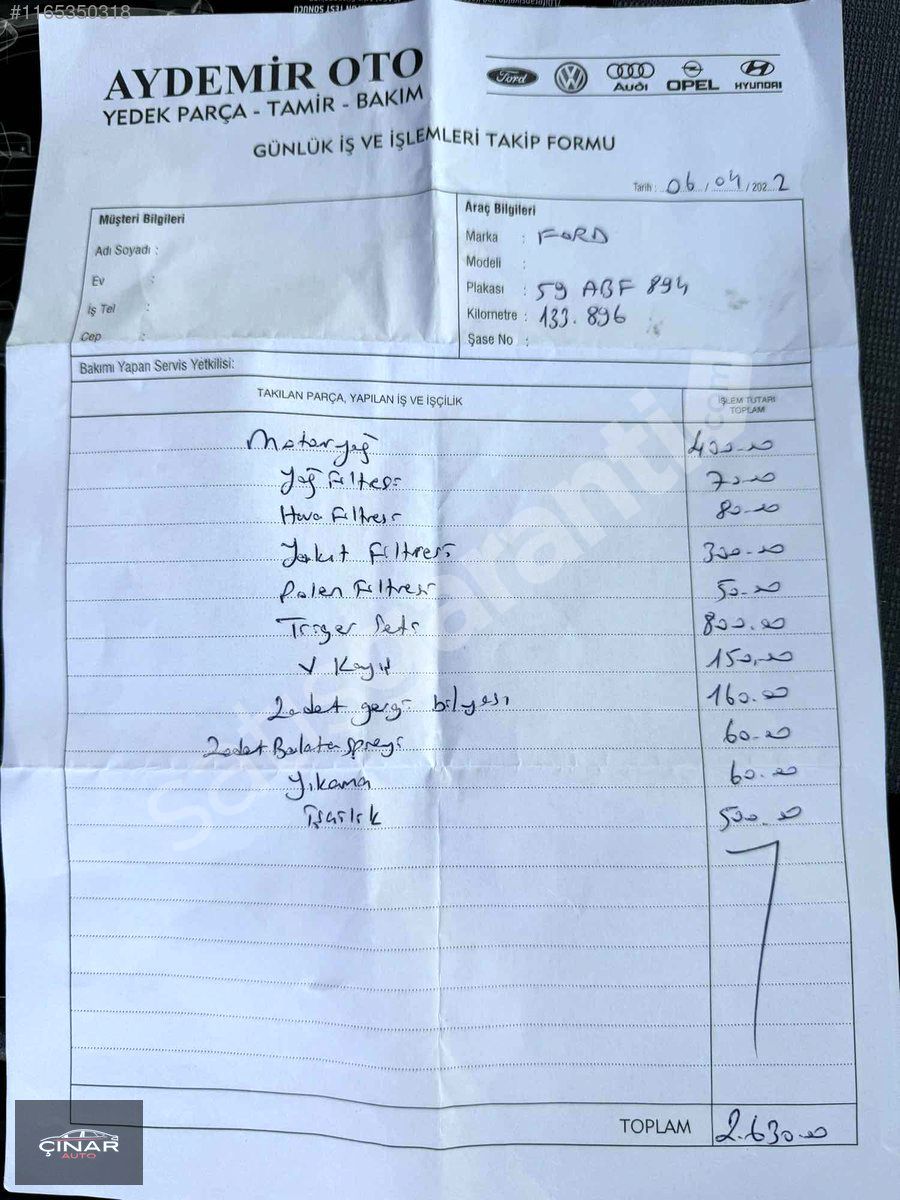 #1165350318
AYDEMİR OTO
YEDEK PARÇA - TAMİR - BAKIM
Ford
AUDI
OPEL
HYUNDAI
GÜNLÜK İŞ VE İŞLEMLERİ TAKİP FORMU
Tarih : 06 / 04 / 2022
Müşteri Bilgileri
Adı Soyadı :
Ev :
İş Tel :
Cep :
Araç Bilgileri
Marka : FORD
Modeli :
Plakası : 59 ABF 894
Kilometre : 133.896
Şase No :
Bakımı Yapan Servis Yetkilisi:
TAKILAN PARÇA, YAPILAN İŞ VE İŞÇİLİK
İŞLEM TUTARI TOPLAM
Motor yağ 400.00
Yağ Filtresi 70.00
Hava Filtresi 80.00
Yakıt Filtresi 300.00
Polen Filtresi 50.00
Triger Seti 800.00
V Kayış 150.00
2 adet gergi bilyesi 160.00
2 adet Balata Spreyi 60.00
Yıkama 60.00
İşçilik 500.00
TOPLAM 2.630.00
sahibinden garanti.com
ÇINAR
AUTO